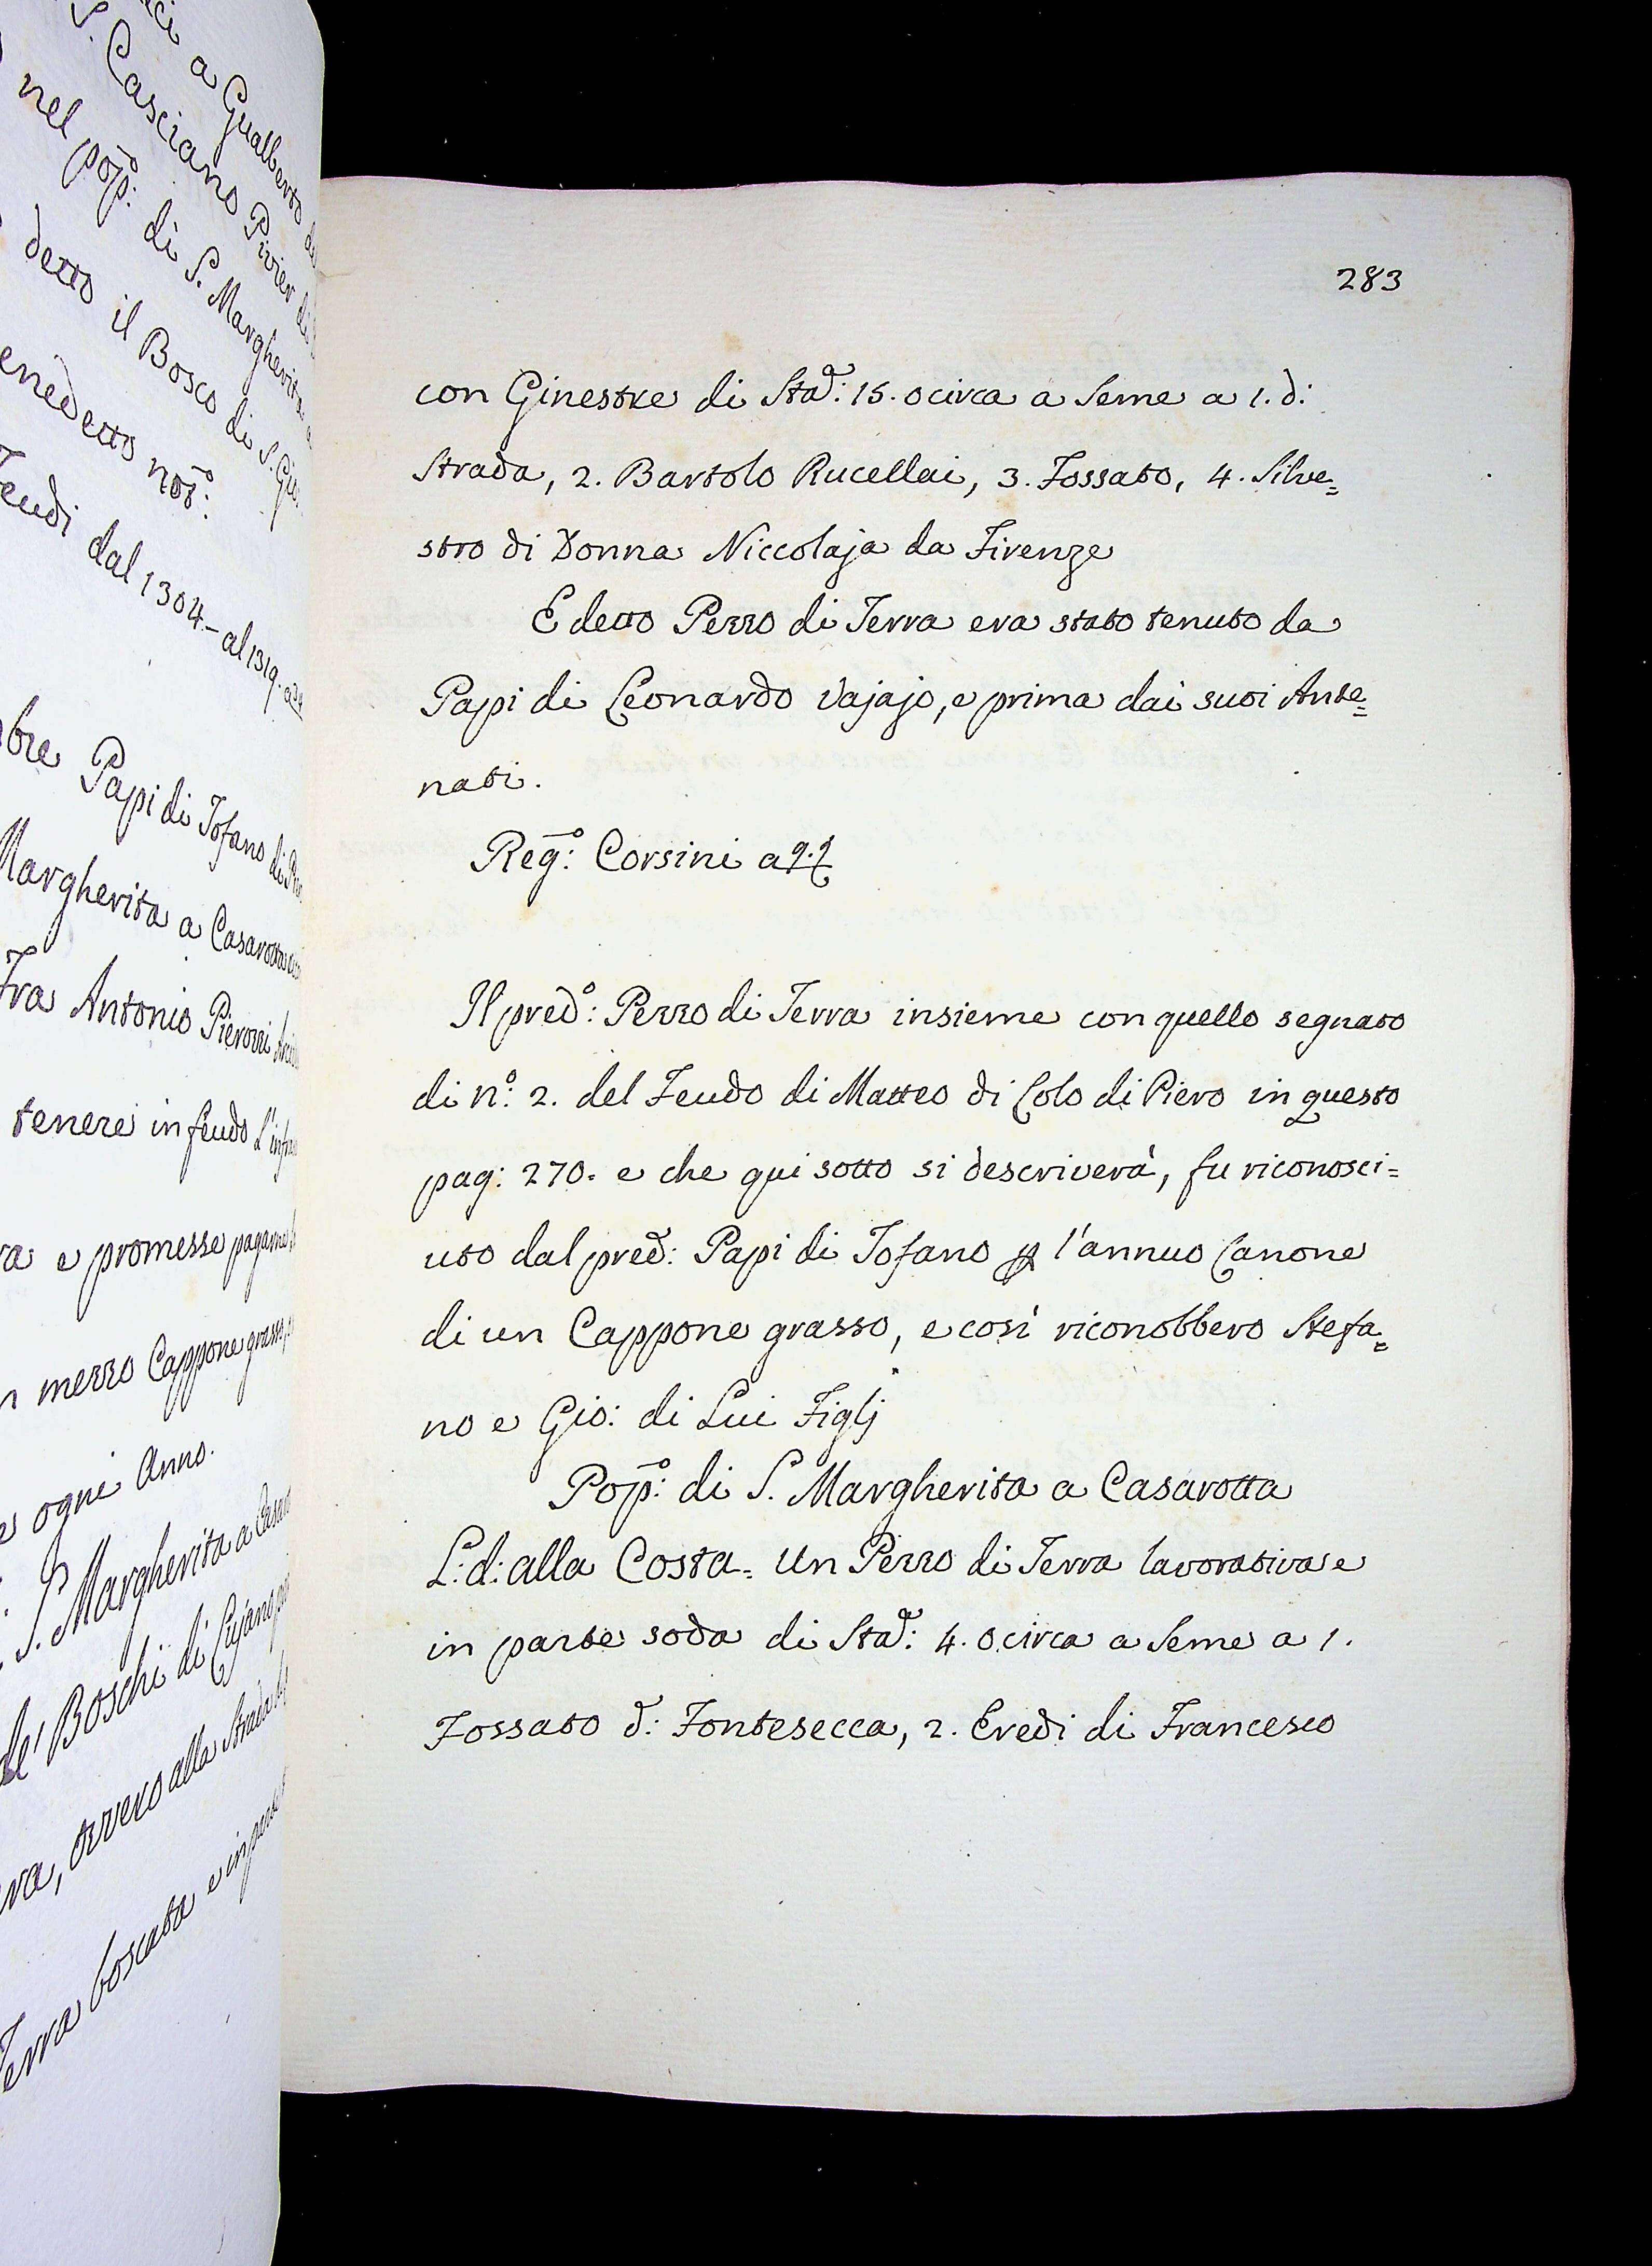 ci a Gualberto
S. Casciano Pivier di
nel pop̄º: di S. Margherita
detto il Bosco di S. Gio
enedetto not̄º:
Feudi dal 1304 – al 1319.
bre Papi di Tofano di
Margherita a Casarotta
Fra Antonio Pierozzi
tenere in feudo l'infra
ra e promesse pagarne
mezzo Cappone grasso
ogni Anno.
S. Margherita a Casarot
de' Boschi di Cujano
va, ovvero alla Strada
Terra boscata e in parte
283
con Ginestre di Staª: 15. o circa a Seme a 1. d:
Strada, 2. Bartolo Rucellai, 3. Fossato, 4. Silve=
stro di Donna Niccolaja da Firenze
E detto Pezzo di Terra era stato tenuto da
Papi di Leonardo Vajajo, e prima dai suoi Ante=
nati.
Reḡº: Corsini a
Il predº: Pezzo di Terra insieme con quello segnato
di nº: 2. del Feudo di Matteo di Colo di Piero in questo
pag: 270. e che qui sotto si descriverà, fu riconosci=
uto dal pred: Papi di Tofano ꝑ l'annuo Canone
di un Cappone grasso, e così riconobbero Stefa=
no e Gio: di Lui Figlj
Pop̄º: di S. Margherita a Casarotta
L: d: alla Costa = Un Pezzo di Terra lavorativa e
in parte soda di Staª: 4. o circa a Seme a 1.
Fossato d: Fontesecca, 2. Eredi di Francesco